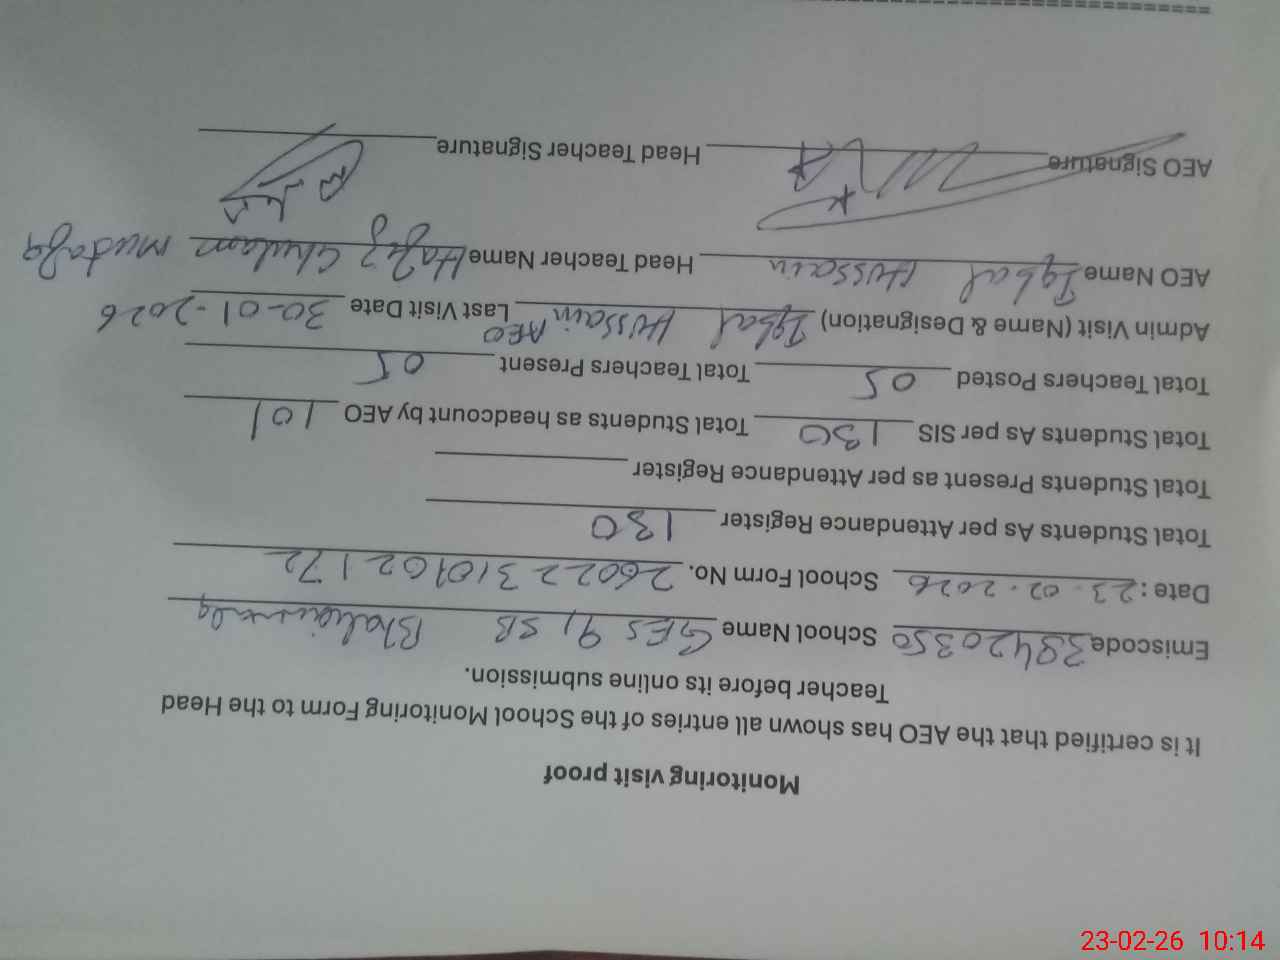 Monitoring visit proof
It is certified that the AEO has shown all entries of the School Monitoring Form to the Head
Teacher before its online submission.
Emiscode 38420350 School Name GES 91 SB
Date: 23-02-2026 School Form No. 2602231010 2172
Total Students As per Attendance Register 130
Total Students Present as per Attendance Register
Total Students As per SIS 130 Total Students as headcount by AEO 101
Total Teachers Posted 05 Total Teachers Present 05
Admin Visit (Name & Designation) Iqbal Hussain AEO Last Visit Date 30-01-2026
AEO Name Iqbal Hussain Head Teacher Name Hafiz Ghulam Mustafa
AEO Signature Head Teacher Signature
23-02-26 10:14